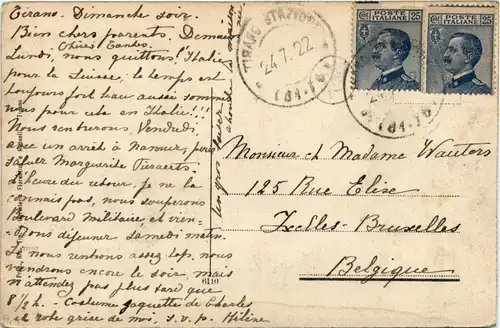 Tirano - Dimanche soir
Bien chers parents. Demain
(Khires! Tantes.
Lundi, nous quittons l'Italie
pour la Suisse. le temps est
toujours fort beau aussi sommes
nous pour cela en Italie!!!
Nous rentrerons Vendredi
avec un arrêt à Namur, pour
saluer Marguerite Tiraerts.
d'heure du retour, je ne la
connais pas, nous souperons
Boulevard Militaire et vien-
drons déjeuner samedi matin.
Si nous rentrons assez tôp, nous
viendrons encore le soir, mais
n'attendez pas plus tard que
8 1/2 h. - Costume jaquette de Charles
et robe grise de moi. s.v.p. Hélène
un gros baiser
6110
TIRANO STAZIONE
24.7.22
POSTE ITALIANE
25
POSTE ITALIANE
25
Monsieur et Madame Wauters
125 Rue Elise
Ixelles-Bruxelles
Belgique